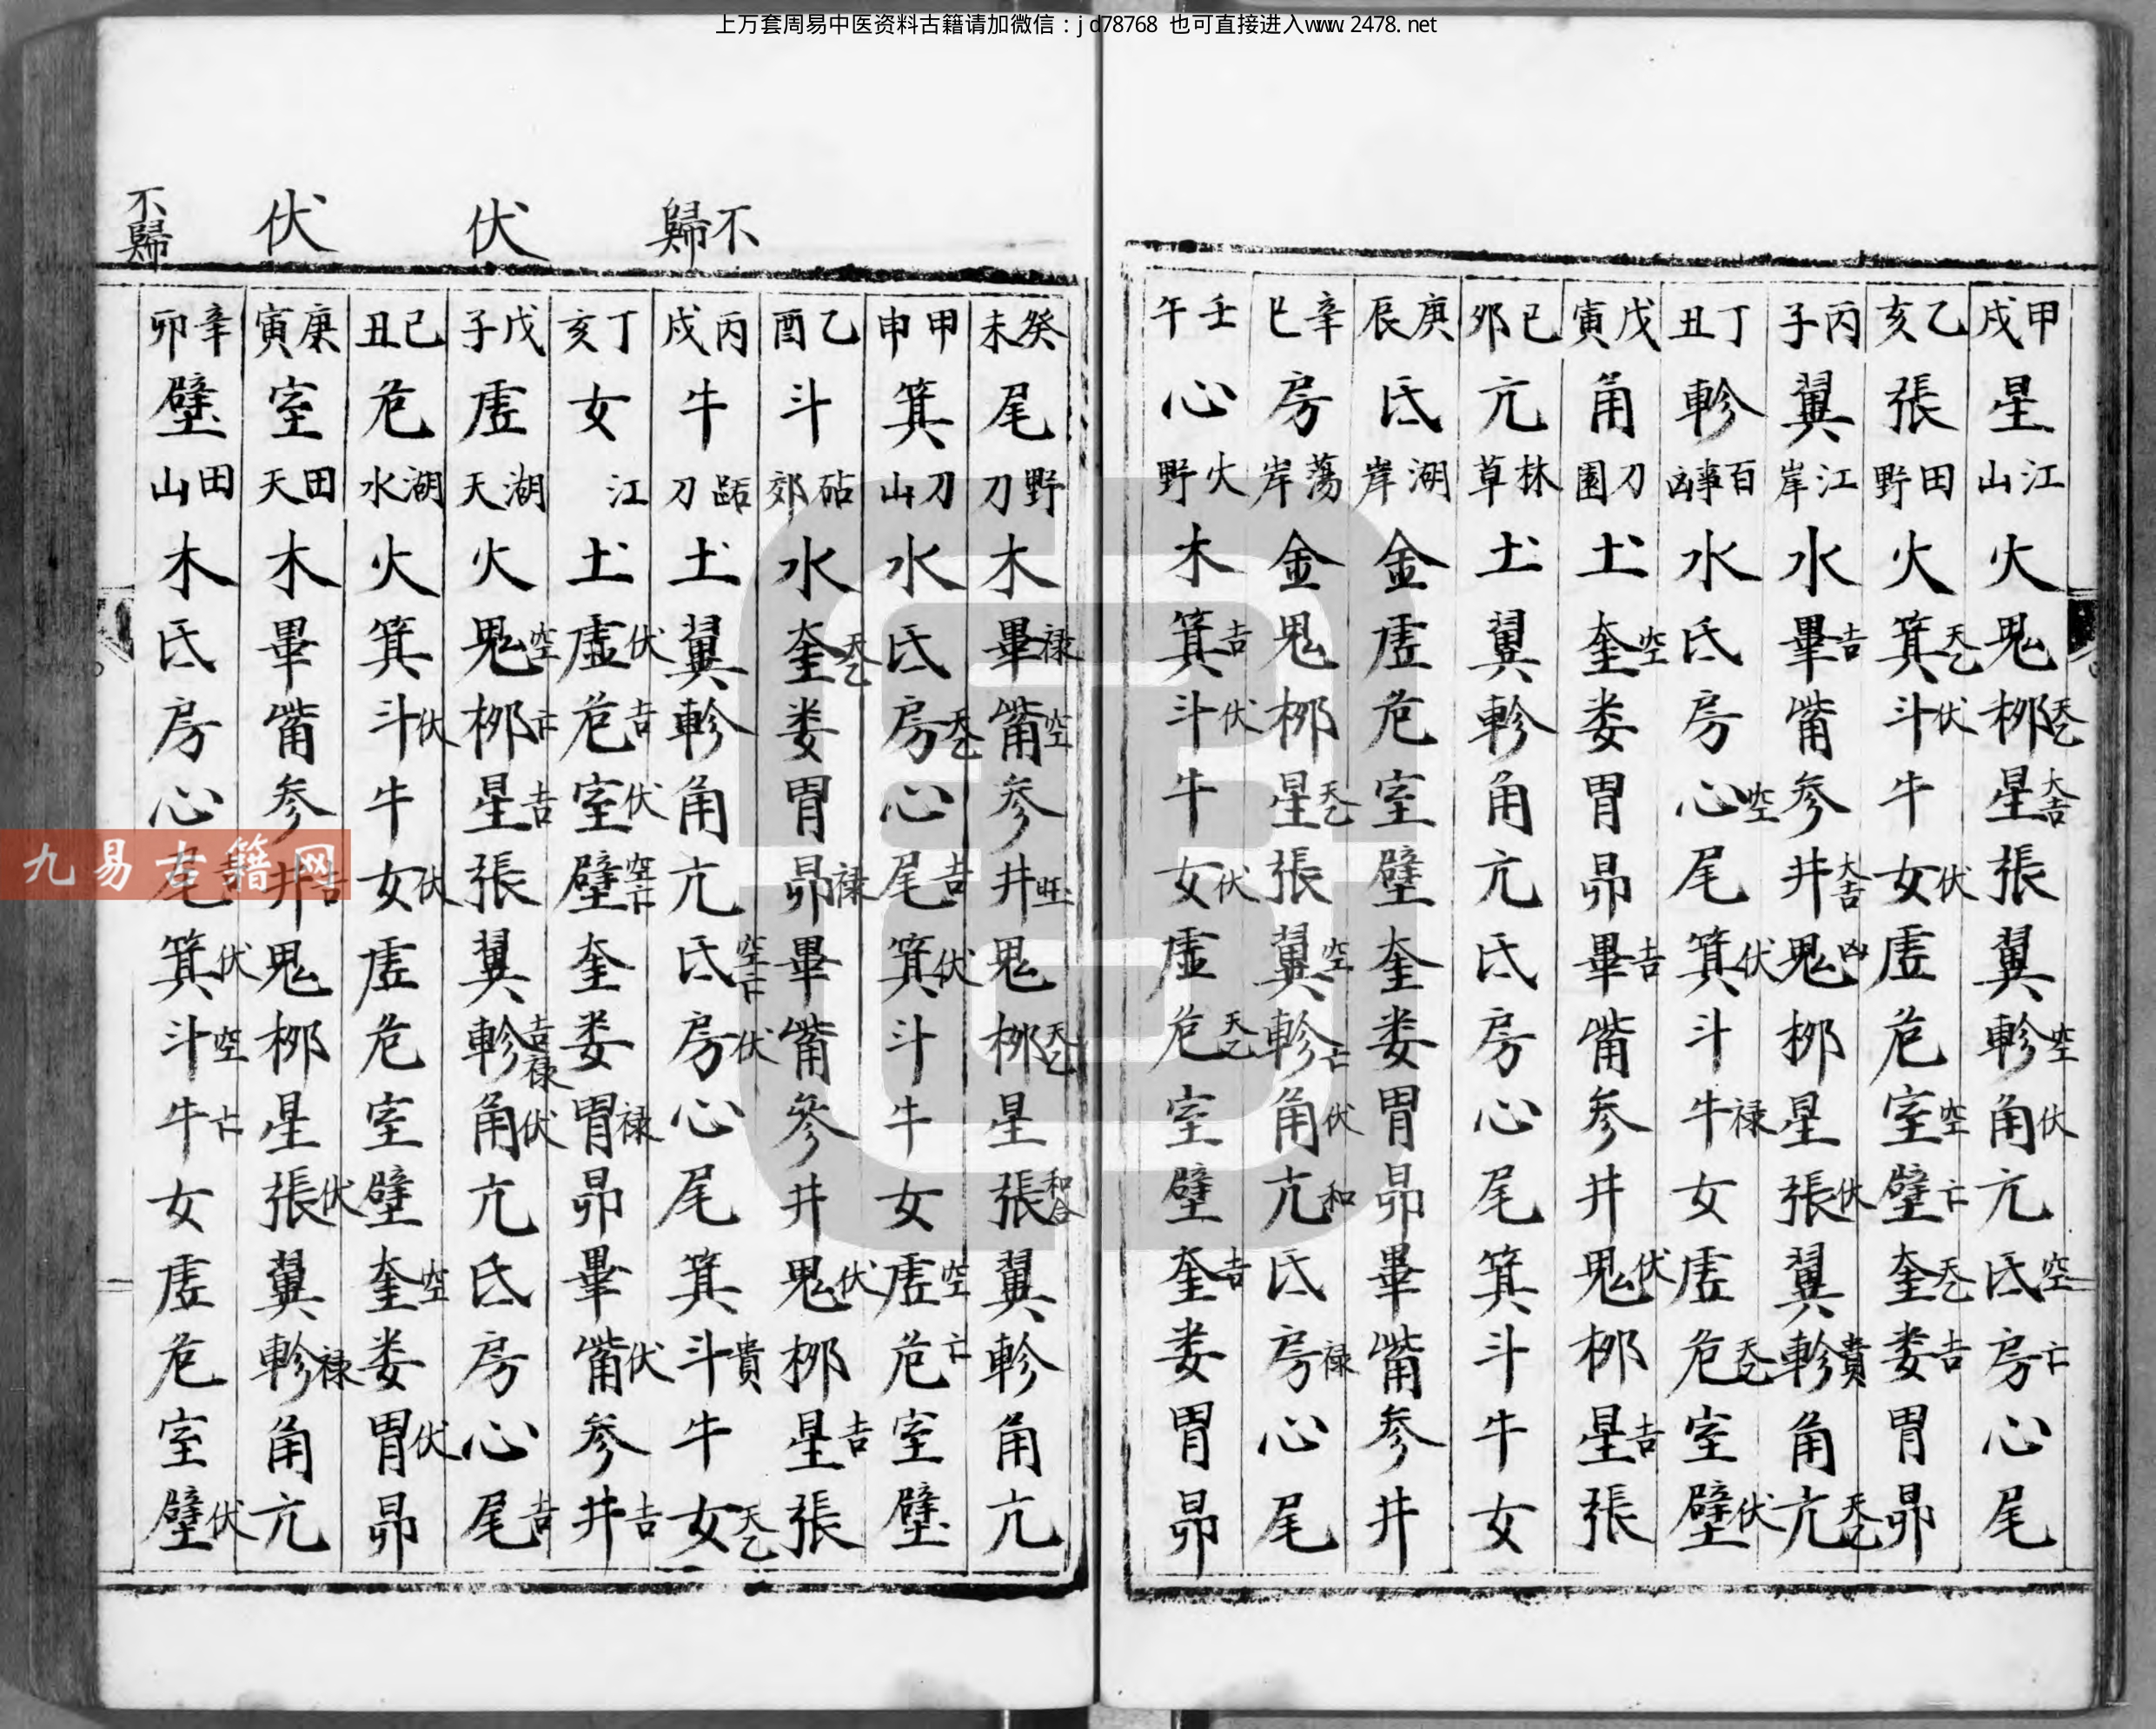 上万套周易中医资料古籍请加微信：jd78768 也可直接进入www.2478.net
甲戌 星 江山 火 鬼 柳天乙 星大吉 張 翼 軫空 角伏 亢 氐空 房亡 心 尾
乙亥 張 田野 火 箕天乙 斗伏 牛 女伏 虛 危 室空 壁亡 奎天乙 娄吉 胃 昴
丙子 翼 江岸 水 畢吉 觜 参 井大吉 鬼凶 柳 星 張伏 翼 軫貴 角 亢天乙
丁丑 軫 百事凶 水 氐 房 心空 尾 箕伏 斗 牛禄 女 虛 危天乙 室 壁伏
戊寅 角 刀園 土 奎空 娄 胃 昴 畢吉 觜 参 井 鬼伏 柳 星吉 張
己卯 亢 林草 土 翼 軫 角 亢 氐 房 心 尾 箕 斗 牛 女
庚辰 氐 湖岸 金 虛 危 室 壁 奎 娄 胃 昴 畢 觜 参 井
辛巳 房 蕩岸 金 鬼 柳 星天乙 張 翼空 軫亡 角伏 亢和 氐 房禄 心 尾
壬午 心 火野 木 箕吉 斗伏 牛 女伏 虛 危天乙 室 壁 奎吉 娄 胃 昴
不歸
伏
伏
不歸
癸未 尾 野刀 木 畢禄 觜空 参 井旺 鬼 柳天乙 星 張和合 翼 軫 角 亢
甲申 箕 刀山 水 氐 房天乙 心 尾吉 箕伏 斗 牛 女 虛空 危亡 室 壁
乙酉 斗 砧郊 水 奎天乙 娄 胃 昴禄 畢 觜 參 井 鬼伏 柳 星吉 張
丙戌 牛 刀 土 翼 軫 角 亢 氐空亡 房伏 心 尾 箕 斗貴 牛 女天乙
丁亥 女 江 土 虛伏 危吉 室伏 壁空亡 奎 娄 胃禄 昴 畢 觜伏 参 井吉
戊子 虛 湖天 火 鬼空 柳亡 星吉 張 翼 軫吉禄 角伏 亢 氐 房 心 尾吉
己丑 危 湖水 火 箕 斗伏 牛 女伏 虛 危 室 壁 奎空 娄 胃伏 昴
庚寅 室 田天 木 畢 觜 参 井吉 鬼 柳 星 張伏 翼 軫禄 角 亢
辛卯 壁 田山 木 氐 房 心 尾吉 箕伏 斗空 牛亡 女 虛 危 室 壁伏
九易古籍网